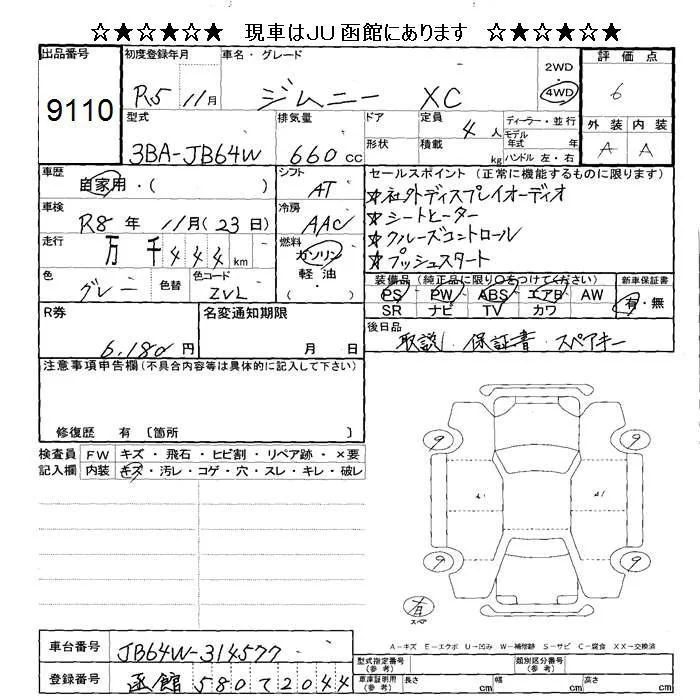 ☆★☆★☆★ 現車はJU函館にあります ☆★☆★☆★
出品番号 9110
初度登録年月 R5 11月
車名・グレード ジムニー XC
2WD・4WD
評価点 6
外装 A 内装 A
型式 3BA-JB64W
排気量 660cc
ドア 定員 4人
形状 積載 kg
ディーラー・並行
モデル年式 年
ハンドル 左・右
車歴 自家用・( )
シフト AT
車検 R8年 11月(23日)
冷房 AAC
走行 万 千 444 km
燃料 ガソリン 軽油 ( )
色 グレー 色替 色コード ZVL
セールスポイント (正常に機能するものに限ります)
☆社外ディスプレイオーディオ
☆シートヒーター
☆クルーズコントロール
☆プッシュスタート
装備品 (純正品に限り○をつけてください) 新車保証書
PS PW ABS エアB AW 有・無
SR ナビ TV カワ
後日品 取説、保証書、スペアキー
R券 6,180円
名変通知期限 月 日
注意事項申告欄 (不具合内容等は具体的に記入して下さい)
修復歴 有 〔箇所 〕
検査員記入欄 FW キズ・飛石・ヒビ割・リペア跡・×要
内装 キズ・汚レ・コゲ・穴・スレ・キレ・破レ
9 9
A1 A1
9 9
スペア
A-キズ E-エクボ U-凹み W-補修跡 S-サビ C-腐食 XX-交換済
車台番号 JB64W-314577
登録番号 函館 580 て 2044
型式指定番号(参考) 類別区分番号(参考)
車庫証明用(参考) 長さ cm 幅 cm 高さ cm